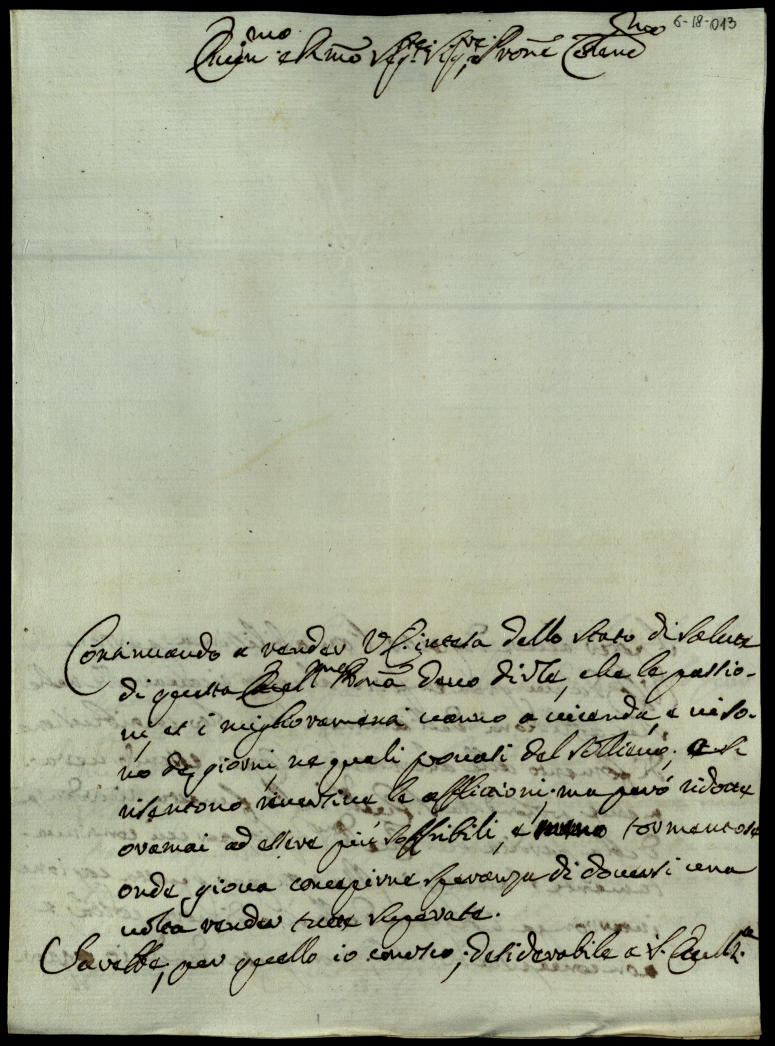 6-18-013
Em.mo e R.mo Sig.r Sig.r, P.rone Colen.mo
Continuando a render V. E. intesa dello stato di salute
di questa Ecell.ma P.rona deuo dirle, che le passio-
ni, et i miglioramenti uanno a uicenda, e ui so-
no de giorni, ne quali prouasi del sollieuo, e si
risentono le afflizioni; ma però ridotte
oramai ad essere più soffribili, e meno tormentose
onde gioua concepirne speranza di douersi una
uolta render tutte superate.
Sarebbe, per quello io conosco, desiderabile a S. Ecell.za